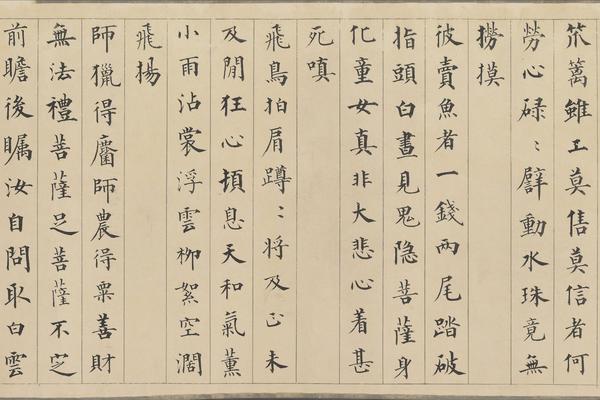 笊篱雖工莫售莫信者何
勞心碌〻劈動水珠竟無
撈摸
彼賣魚者一錢兩尾踏破
指頭白晝見鬼隐菩薩身
化童女真非大悲心着甚
死嗔
飛鳥拍肩蹲〻將及正未
及閒狂心頓息天和氣薰
小雨沾裳浮雲柳絮空濶
飛揚
師獵得麕師農得粟善財
無法禮菩薩足菩薩不定
前瞻後矚汝自問取白雲